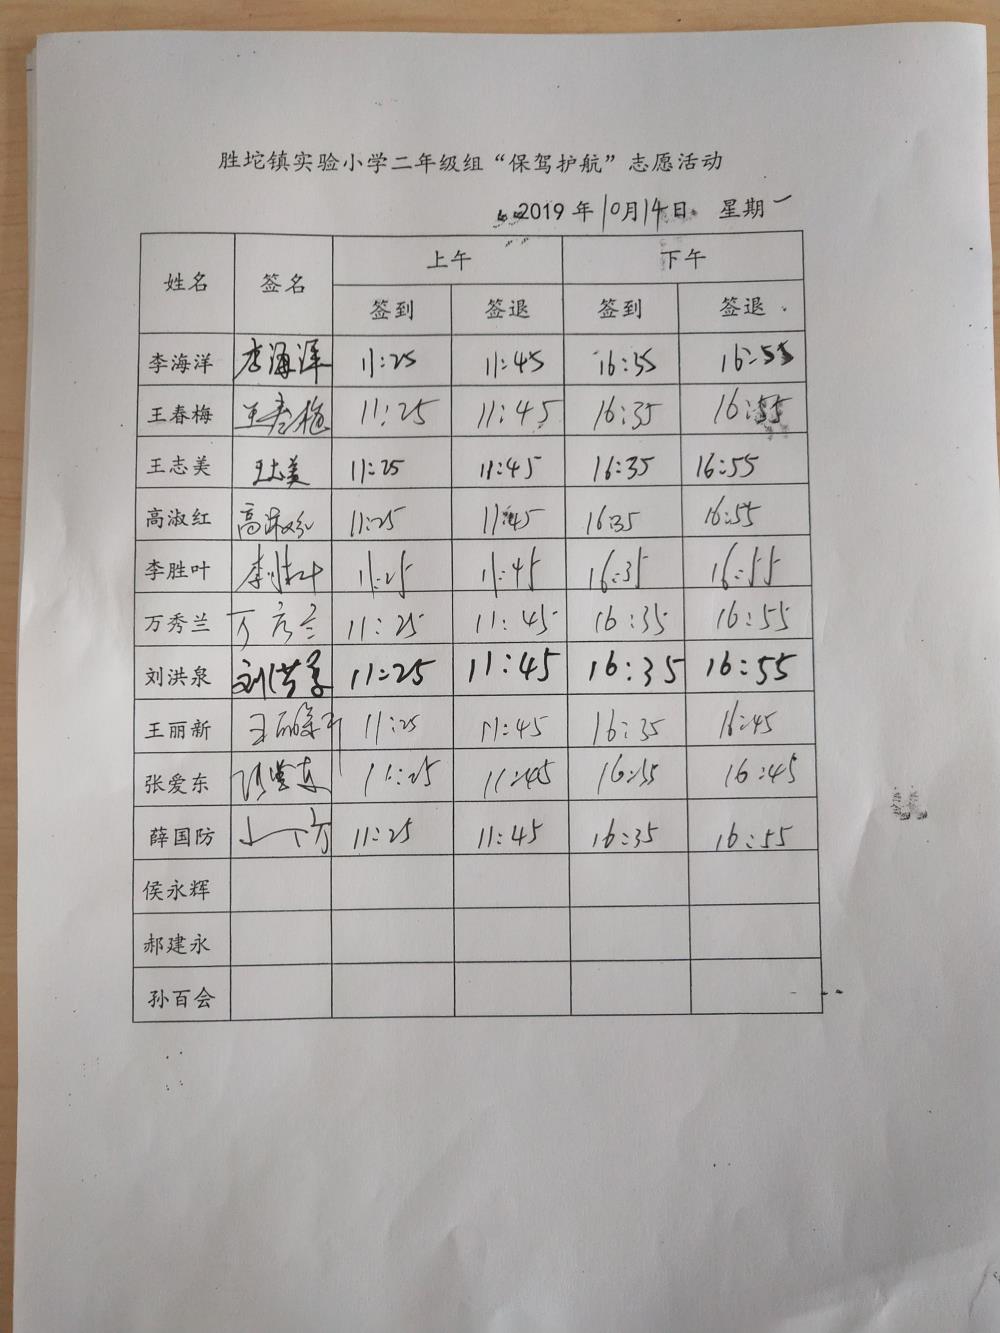 胜坨镇实验小学二年级组“保驾护航”志愿活动
2019年10月14日 星期一
姓名 签名 上午 下午
签到 签退 签到 签退
李海洋 李海洋 11:25 11:45 16:35 16:55
王春梅 王春梅 11:25 11:45 16:35 16:55
王志美 王志美 11:25 11:45 16:35 16:55
高淑红 高淑红 11:25 11:45 16:35 16:55
李胜叶 李胜叶 11:25 11:45 16:35 16:55
万秀兰 万秀兰 11:25 11:45 16:35 16:55
刘洪泉 刘洪泉 11:25 11:45 16:35 16:55
王丽新 王丽新 11:25 11:45 16:35 16:45
张爱东 张爱东 11:25 11:45 16:35 16:45
薛国防 11:25 11:45 16:35 16:55
侯永辉
郝建永
孙百会